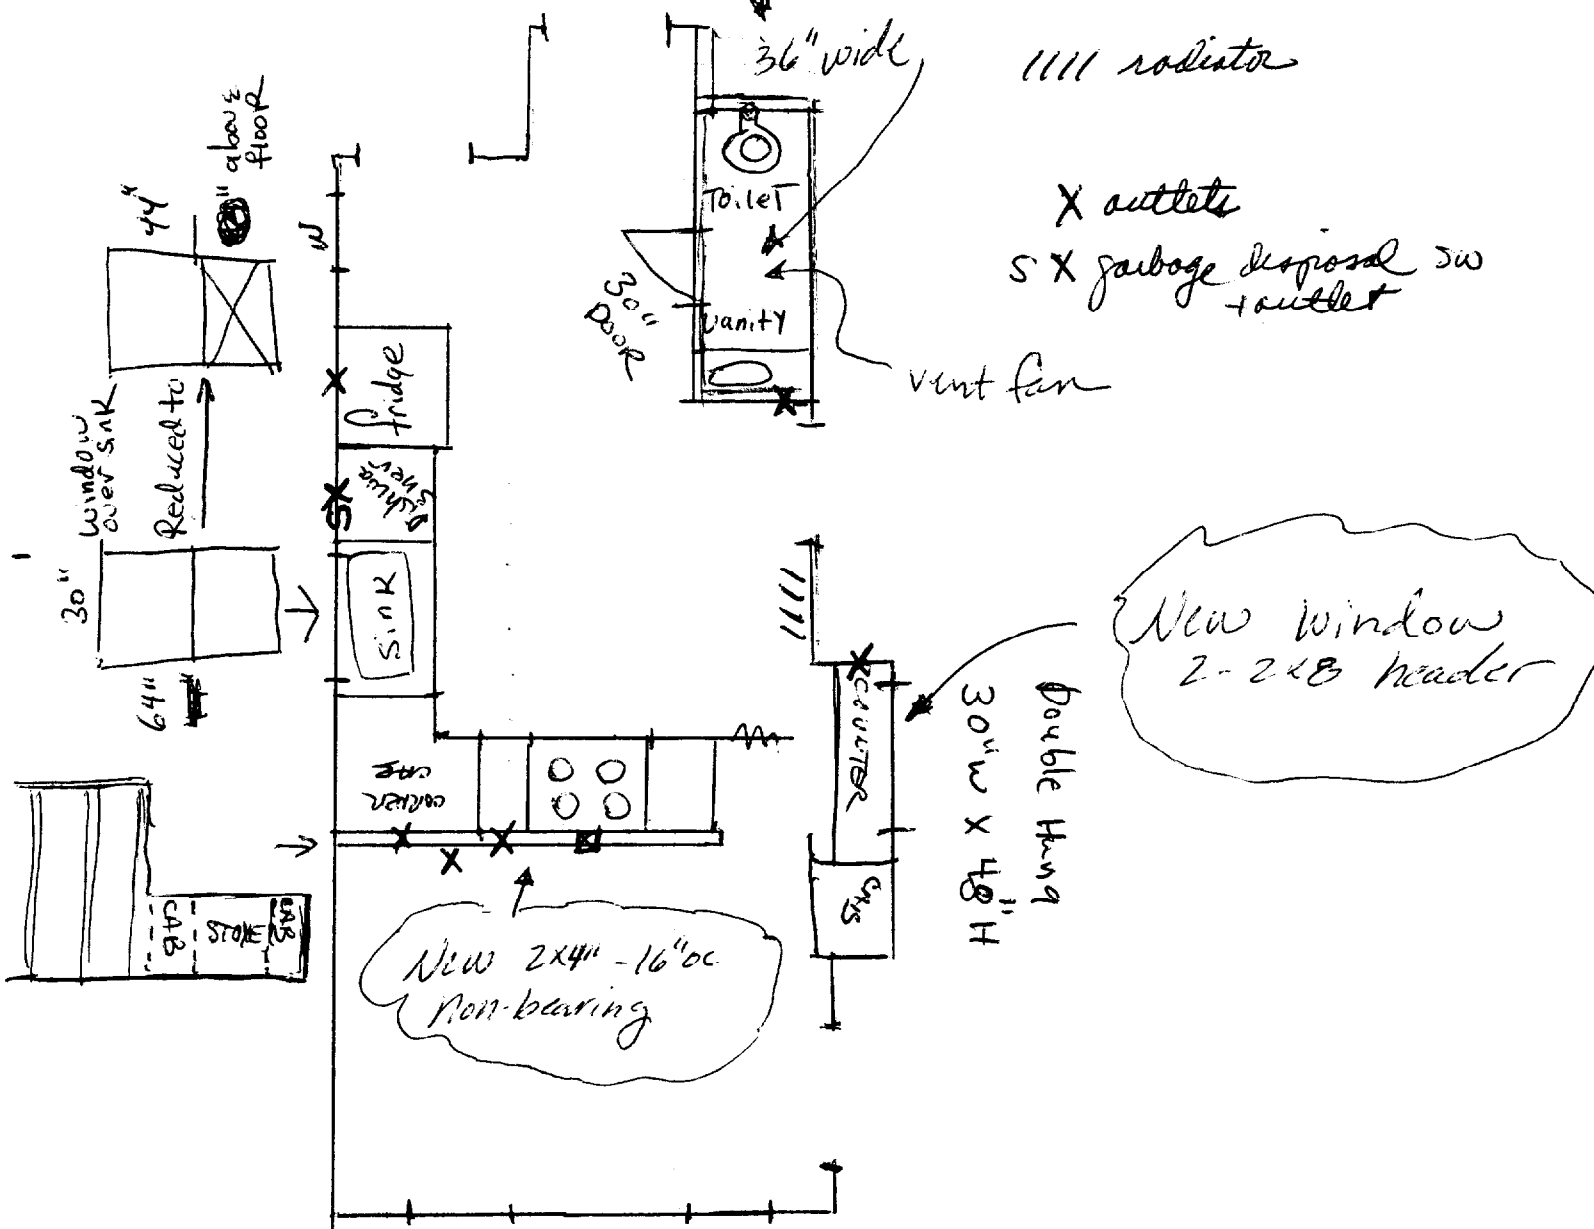 36" wide
//// radiator
X outlets
S X garbage disposal sw
+ outlet
Toilet
30"
DOOR
Vanity
vent fan
44"
" above
floor
W
window
over sink
Reduced to
30"
64"
fridge
Dishwa
sher
S
sink
CORNER
CAB
COUNTER
CABS
New window
2 - 2x8 header
Double Hung
30"W X 48"H
CAB
STOVE
CAB
New 2x4" - 16" oc
non-bearing